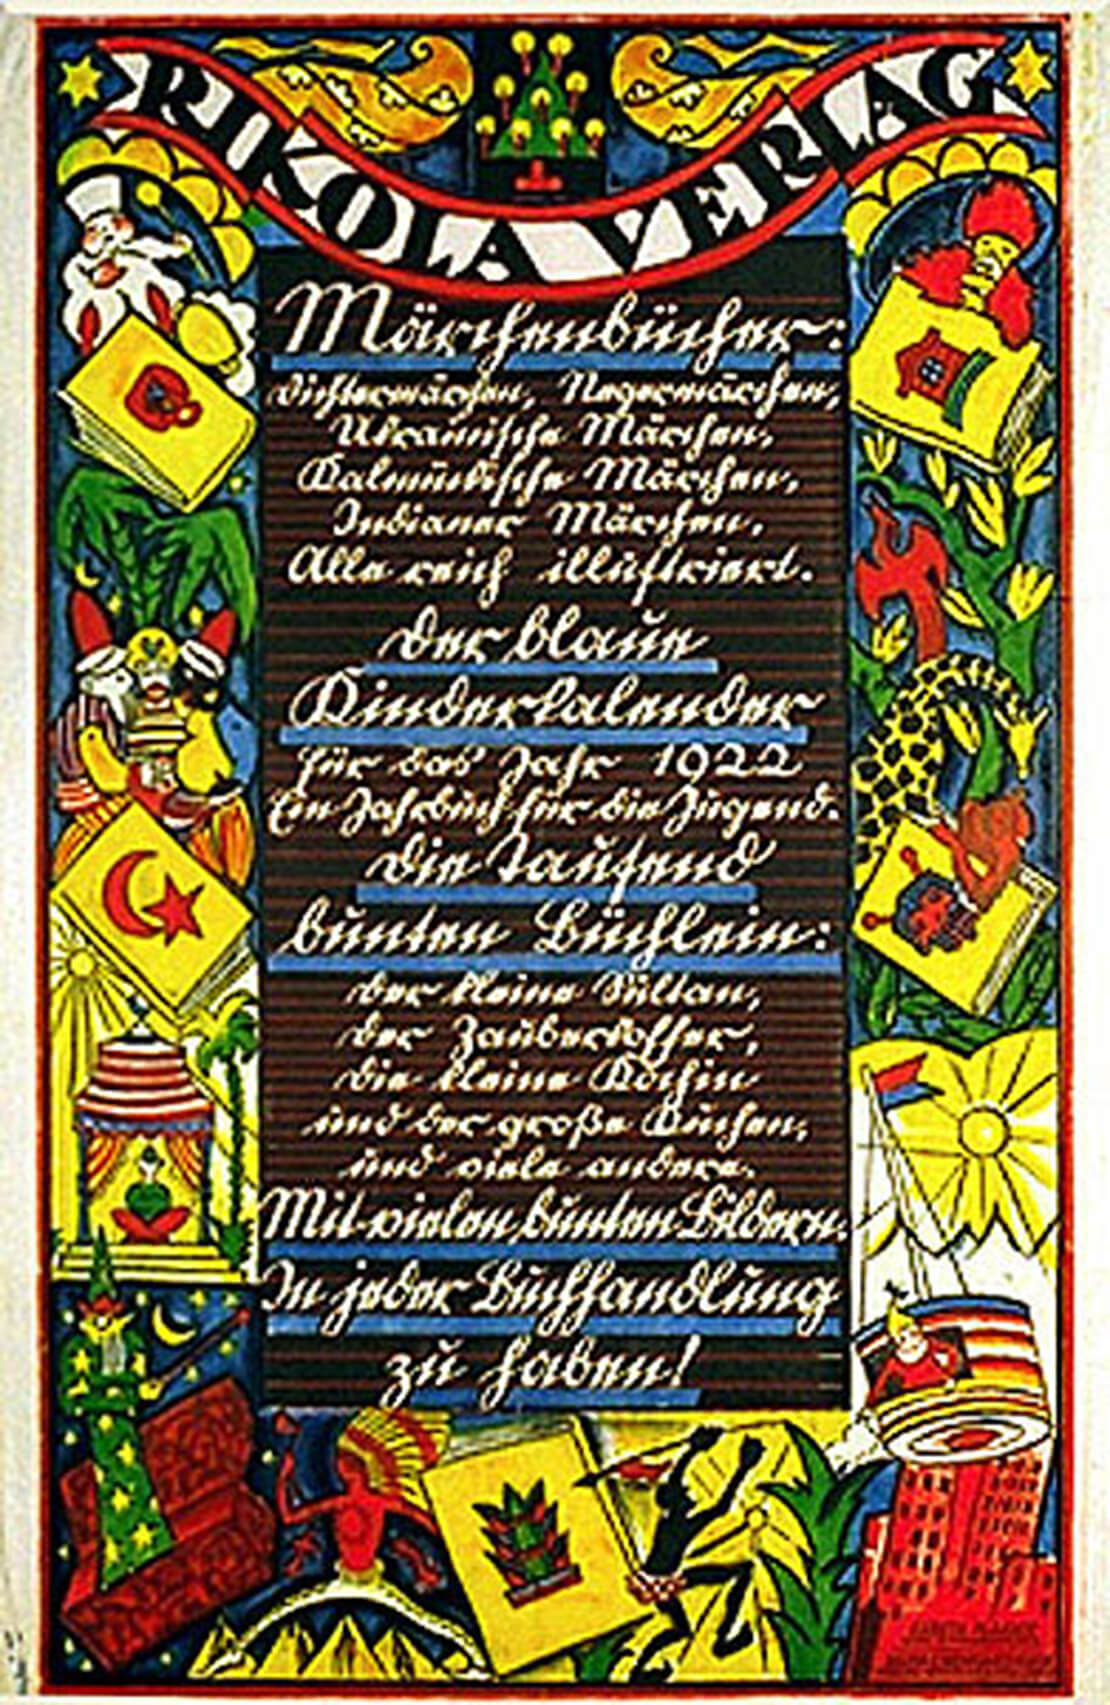 RIKOLA VERLAG
Märchenbücher:
Dichtermärchen, Negermärchen,
Ukrainische Märchen,
Kalmükische Märchen,
Indianer Märchen.
Alle reich illustriert.
Der blaue
Kinderkalender
für das Jahr 1922
Ein Jahrbuch für die Jugend.
Die Tausend
bunten Büchlein:
der kleine Sultan,
der Zauberkoffer,
die kleine Köchin
und der große Kuchen,
und viele andere.
Mit vielen bunten Bildern.
In jeder Buchhandlung
zu haben!